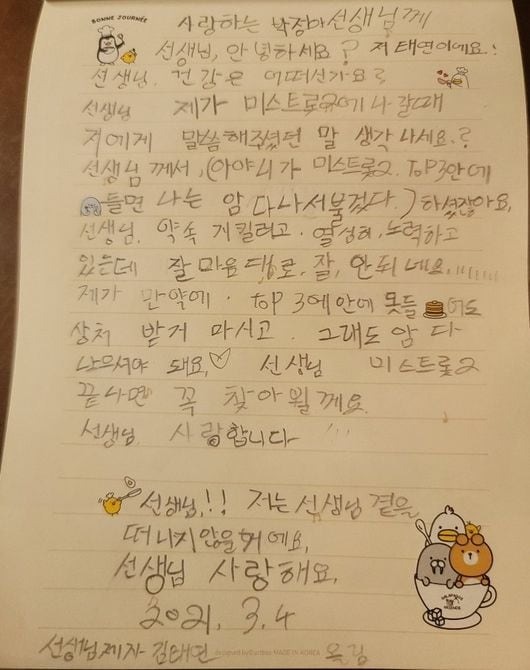 BONNE JOURNÉE
사랑하는 박정아선생님께
선생님, 안녕하세요? 저 태연이에요.!
선생님. 건강은 어떠신가요?
선생님 제가 미스트롯2에 나갈때
저에게 말씀해주셨던 말 생각나세요.?
선생님께서, (아야 니가 미스트롯2. TOP3안에
들면 나는 암 다나서불겄다.) 하셨잖아요,
선생님. 약속 지킬려고. 열심히, 노력하고
있는데 잘 마음대로, 잘, 안되네요,,,,,,,,
제가 만약에. TOP 3에안에 못들어도
상처 받거 마시고. 그래도 암 다
나으셔야 돼요,♡ 선생님 미스트롯2
끝나면 꼭 찾아뵐께요.
선생님. 사랑합니다 ,,,
선생님,!! 저는 선생님 곁을
떠나지않을거에요,
선생님 사랑해요.
2021. 3. 4
선생님제자 김태연 올림
MADE IN KOREA